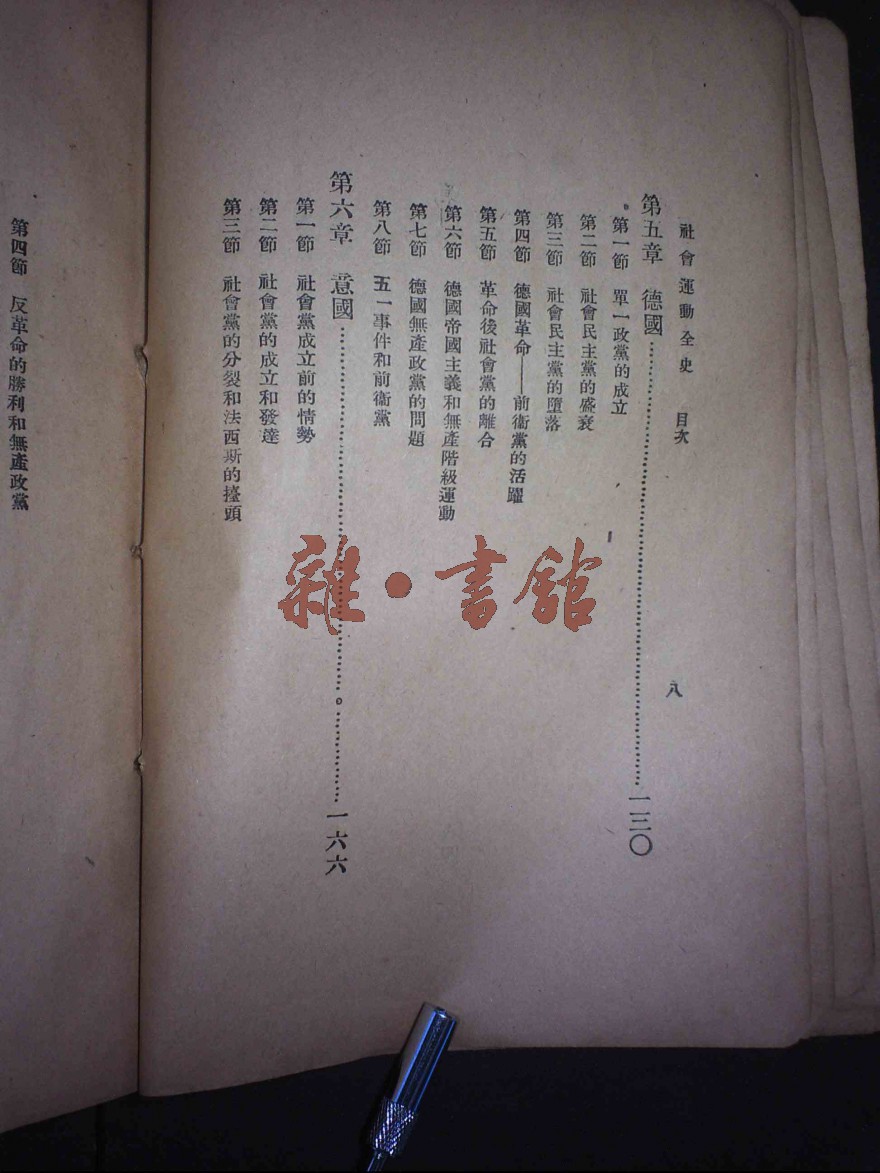 社會運動全史 目次 八
第五章 德國……一三〇
第一節 單一政黨的成立
第二節 社會民主黨的盛衰
第三節 社會民主黨的墮落
第四節 德國革命——前衞黨的活躍
第五節 革命後社會黨的離合
第六節 德國帝國主義和無產階級運動
第七節 德國無產政黨的問題
第八節 五一事件和前衞黨
第六章 意國……一六六
第一節 社會黨成立前的情勢
第二節 社會黨的成立和發達
第三節 社會黨的分裂和法西斯的擡頭
第四節 反革命的勝利和無產政黨
雜·書館